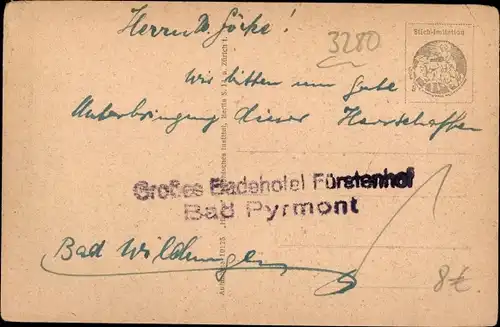 Herrn D. Göcke!
3280
Stich-Imitation
Wir bitten um gute
Unterbringung dieser Herrschaften
Großes Badehotel Fürstenhof
Bad Pyrmont
Bad Wildungen
8€